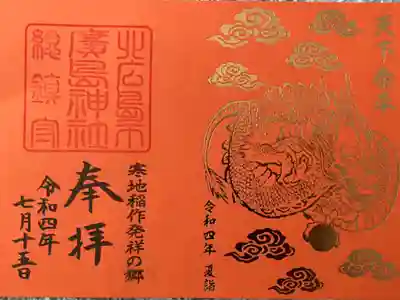 天下泰平
令和四年 夏詣
寒地稲作発祥の郷
奉拝
令和四年
七月十五日
北広島市
廣島神社
総鎮守